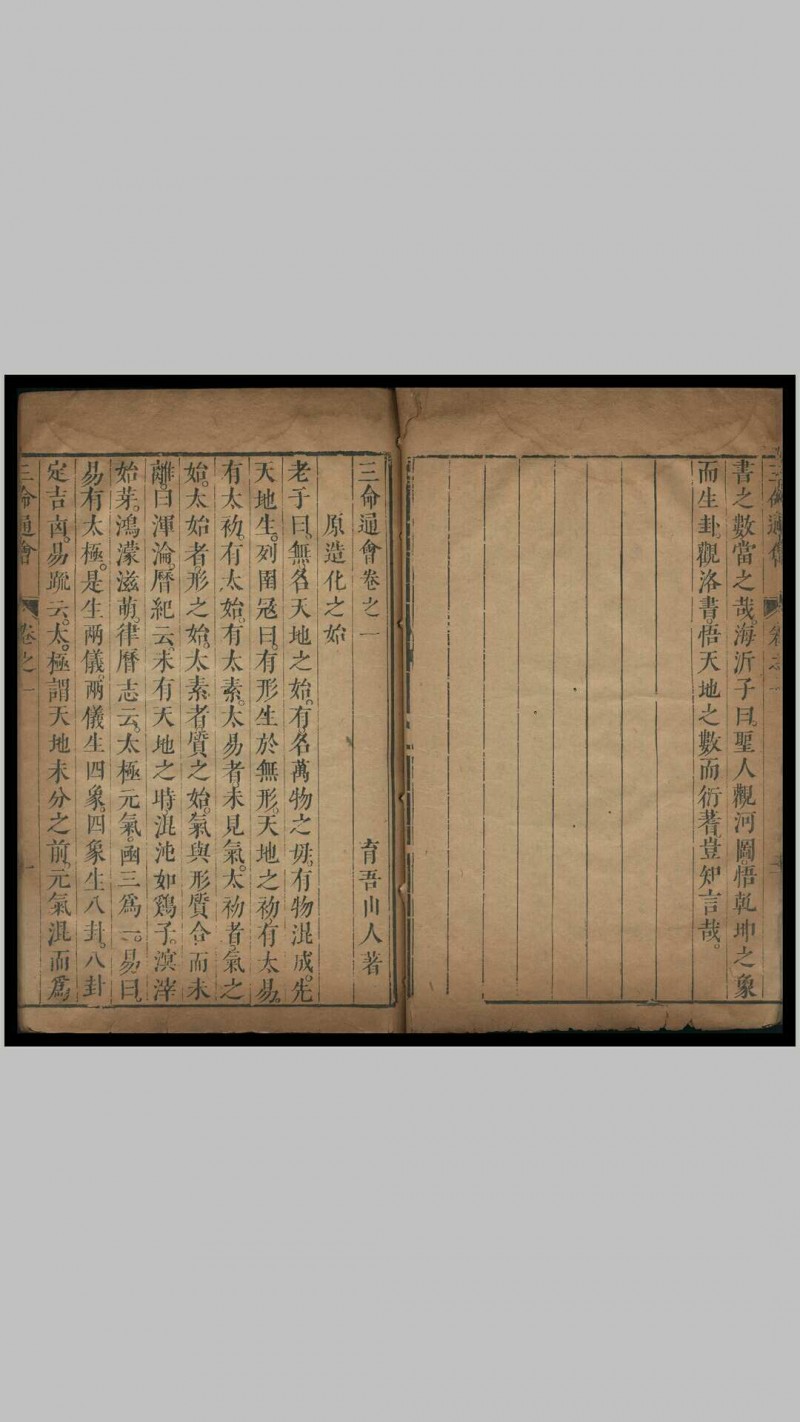 書之數當之哉。海沂子曰。聖人觀河圖。悟乾坤之象
而生卦。觀洛書。悟天地之數而衍蓍。豈知言哉。
三命通會卷之一　育吾山人著
原造化之始
老子曰。無名天地之始。有名萬物之母。有物混成。先
天地生。列圄冦曰。有形生於無形。天地之初有太易。
有太初。有太始。有太素。太易者未見氣。太初者。氣之
始。太始者形之始。太素者質之始。氣與形質合而未
離。曰渾淪。曆紀云。未有天地之時。混沌如鷄子。溟涬
始芽。鴻濛滋萌。律曆志云。太極元氣。函三爲一。易曰。
易有太極。是生兩儀。兩儀生四象。四象生八卦。八卦
定吉凶。易疏云。太極謂天地未分之前。元氣混而爲
三命通會　卷之一　一